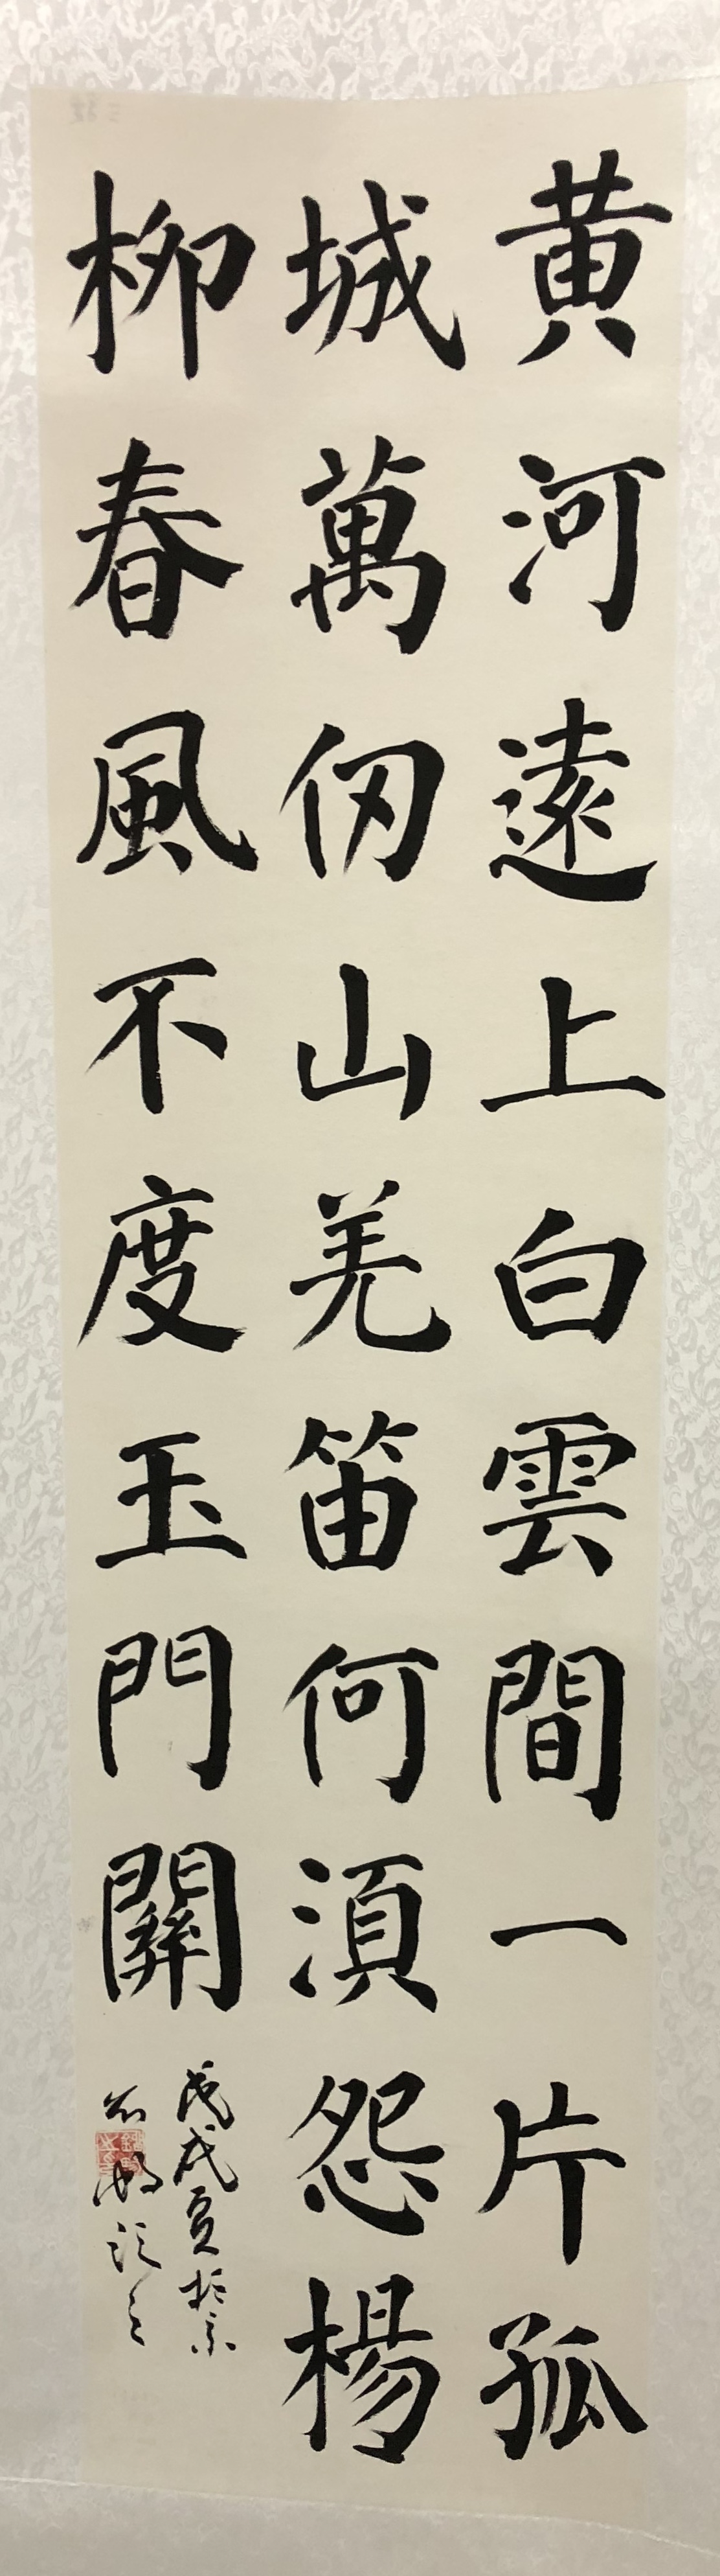 黄河遠上白雲間一片孤
城萬仞山羌笛何須怨楊
柳春風不度玉門關
戊戌夏於京